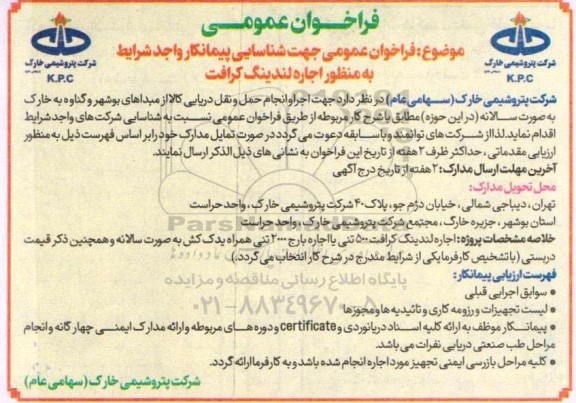 فراخوان عمومی
شرکت پتروشیمی خارک
K.P.C
شرکت پتروشیمی خارک
K.P.C
موضوع: فراخوان عمومی جهت شناسایی پیمانکار واجد شرایط
به منظور اجاره لندینگ کرافت
شرکت پتروشیمی خارک (سهامی عام) در نظر دارد جهت اجرا و انجام حمل و نقل دریایی کالا از مبداهای بوشهر و گناوه به خارک
به صورت سالانه (در این حوزه) مطابق با شرح کار مربوطه از طریق فراخوان عمومی نسبت به شناسایی شرکت های واجد شرایط
اقدام نماید. لذا از شرکت های توانمند و با سابقه دعوت می گردد در صورت تمایل مدارک خود را بر اساس فهرست ذیل به منظور
ارزیابی مقدماتی، حداکثر ظرف ۲ هفته از تاریخ این فراخوان به نشانی های ذیل الذکر ارسال نمایند.
آخرین مهلت ارسال مدارک: ۲ هفته از تاریخ درج آگهی
محل تحویل مدارک:
تهران، دیباجی شمالی، خیابان دژم جو، پلاک ۴۰ شرکت پتروشیمی خارک، واحد حراست
استان بوشهر، جزیره خارگ، مجتمع شرکت پتروشیمی خارک، واحد حراست
خلاصه مشخصات پروژه: اجاره لندینگ کرافت ۵۰۰ تنی یا اجاره بارج ۲۰۰۰ تنی همراه یدک کش به صورت سالانه و همچنین ذکر قیمت
دربستی (با تشخیص کارفرما یکی از شرایط مندرج در شرح کار انتخاب می گردد.)
پایگاه اطلاع رسانی مناقصه و مزایده
۰۲۱-۸۸۳۴۹۶۷۰-۵
فهرست ارزیابی پیمانکار:
• سوابق اجرایی قبلی
• لیست تجهیزات و رزومه کاری و تائیدیه ها و مجوزها
• پیمانکار موظف به ارائه کلیه اسناد دریانوردی و certificate و دوره های مربوطه و ارائه مدارک ایمنی چهارگانه و انجام
مراحل طب صنعتی دریایی نفرات می باشد.
• کلیه مراحل بازرسی ایمنی تجهیز مورد اجاره انجام شده باشد و به کارفرما ارائه گردد.
شرکت پتروشیمی خارک (سهامی عام)